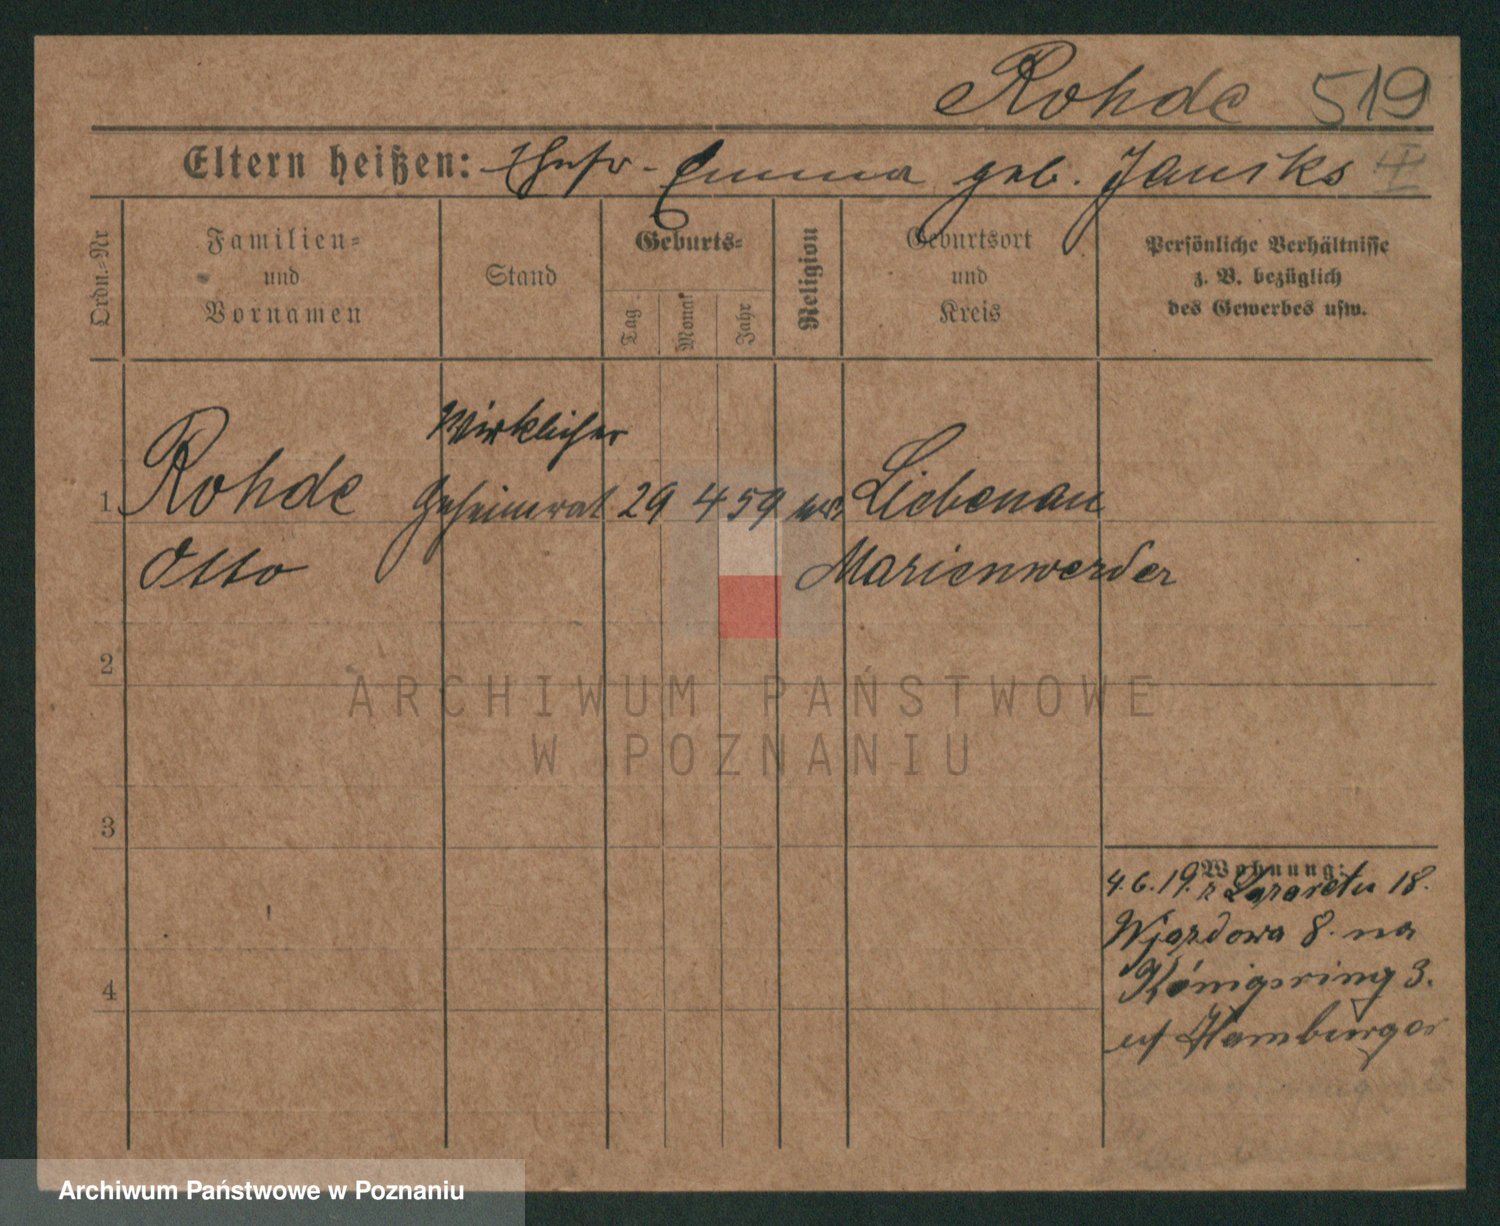 Rohde 519
Eltern heißen: Ehefr - Emma geb. Jansiks III
Ordn.-Nr
Familien- und Vornamen
Stand
Geburts-
Tag
Monat
Jahr
Religion
Geburtsort und Kreis
Persönliche Verhältnisse z. B. bezüglich des Gewerbes usw.
Wirklicher
1 Rohde Geheimrat 29 4 59 Liebenau
Otto Marienwerder
2
ARCHIWUM PAŃSTWOWE
W POZNANIU
3
4
Wohnung:
4.6.19. z Lazaretu 18.
Wjazdowa 8. na
Königsring 3.
Hamburger
Archiwum Państwowe w Poznaniu